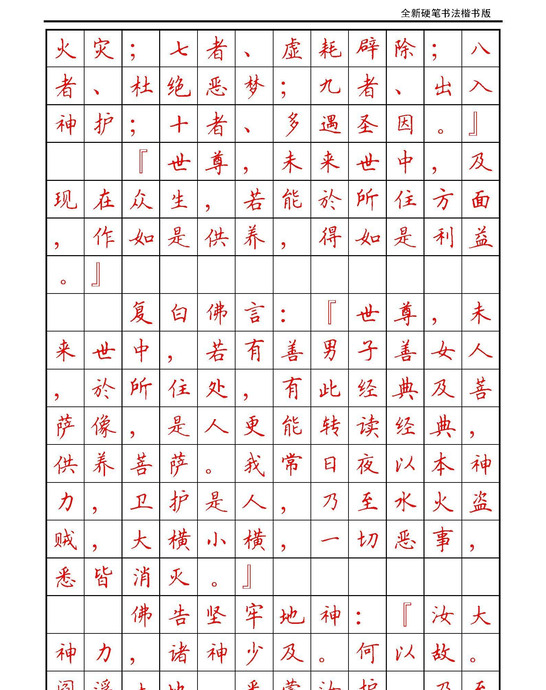 全新硬笔书法楷书版
火灾；七者、虚耗辟除；八
者、杜绝恶梦；九者、出入
神护；十者、多遇圣因。』
『世尊，未来世中，及
现在众生，若能於所住方面
，作如是供养，得如是利益
。』
复白佛言：『世尊，未
来世中，若有善男子善女人
，於所住处，有此经典及菩
萨像，是人更能转读经典，
供养菩萨。我常日夜以本神
力，卫护是人，乃至水火盗
贼，大横小横，一切恶事，
悉皆消灭。』
佛告坚牢地神：『汝大
神力，诸神少及。何以故。